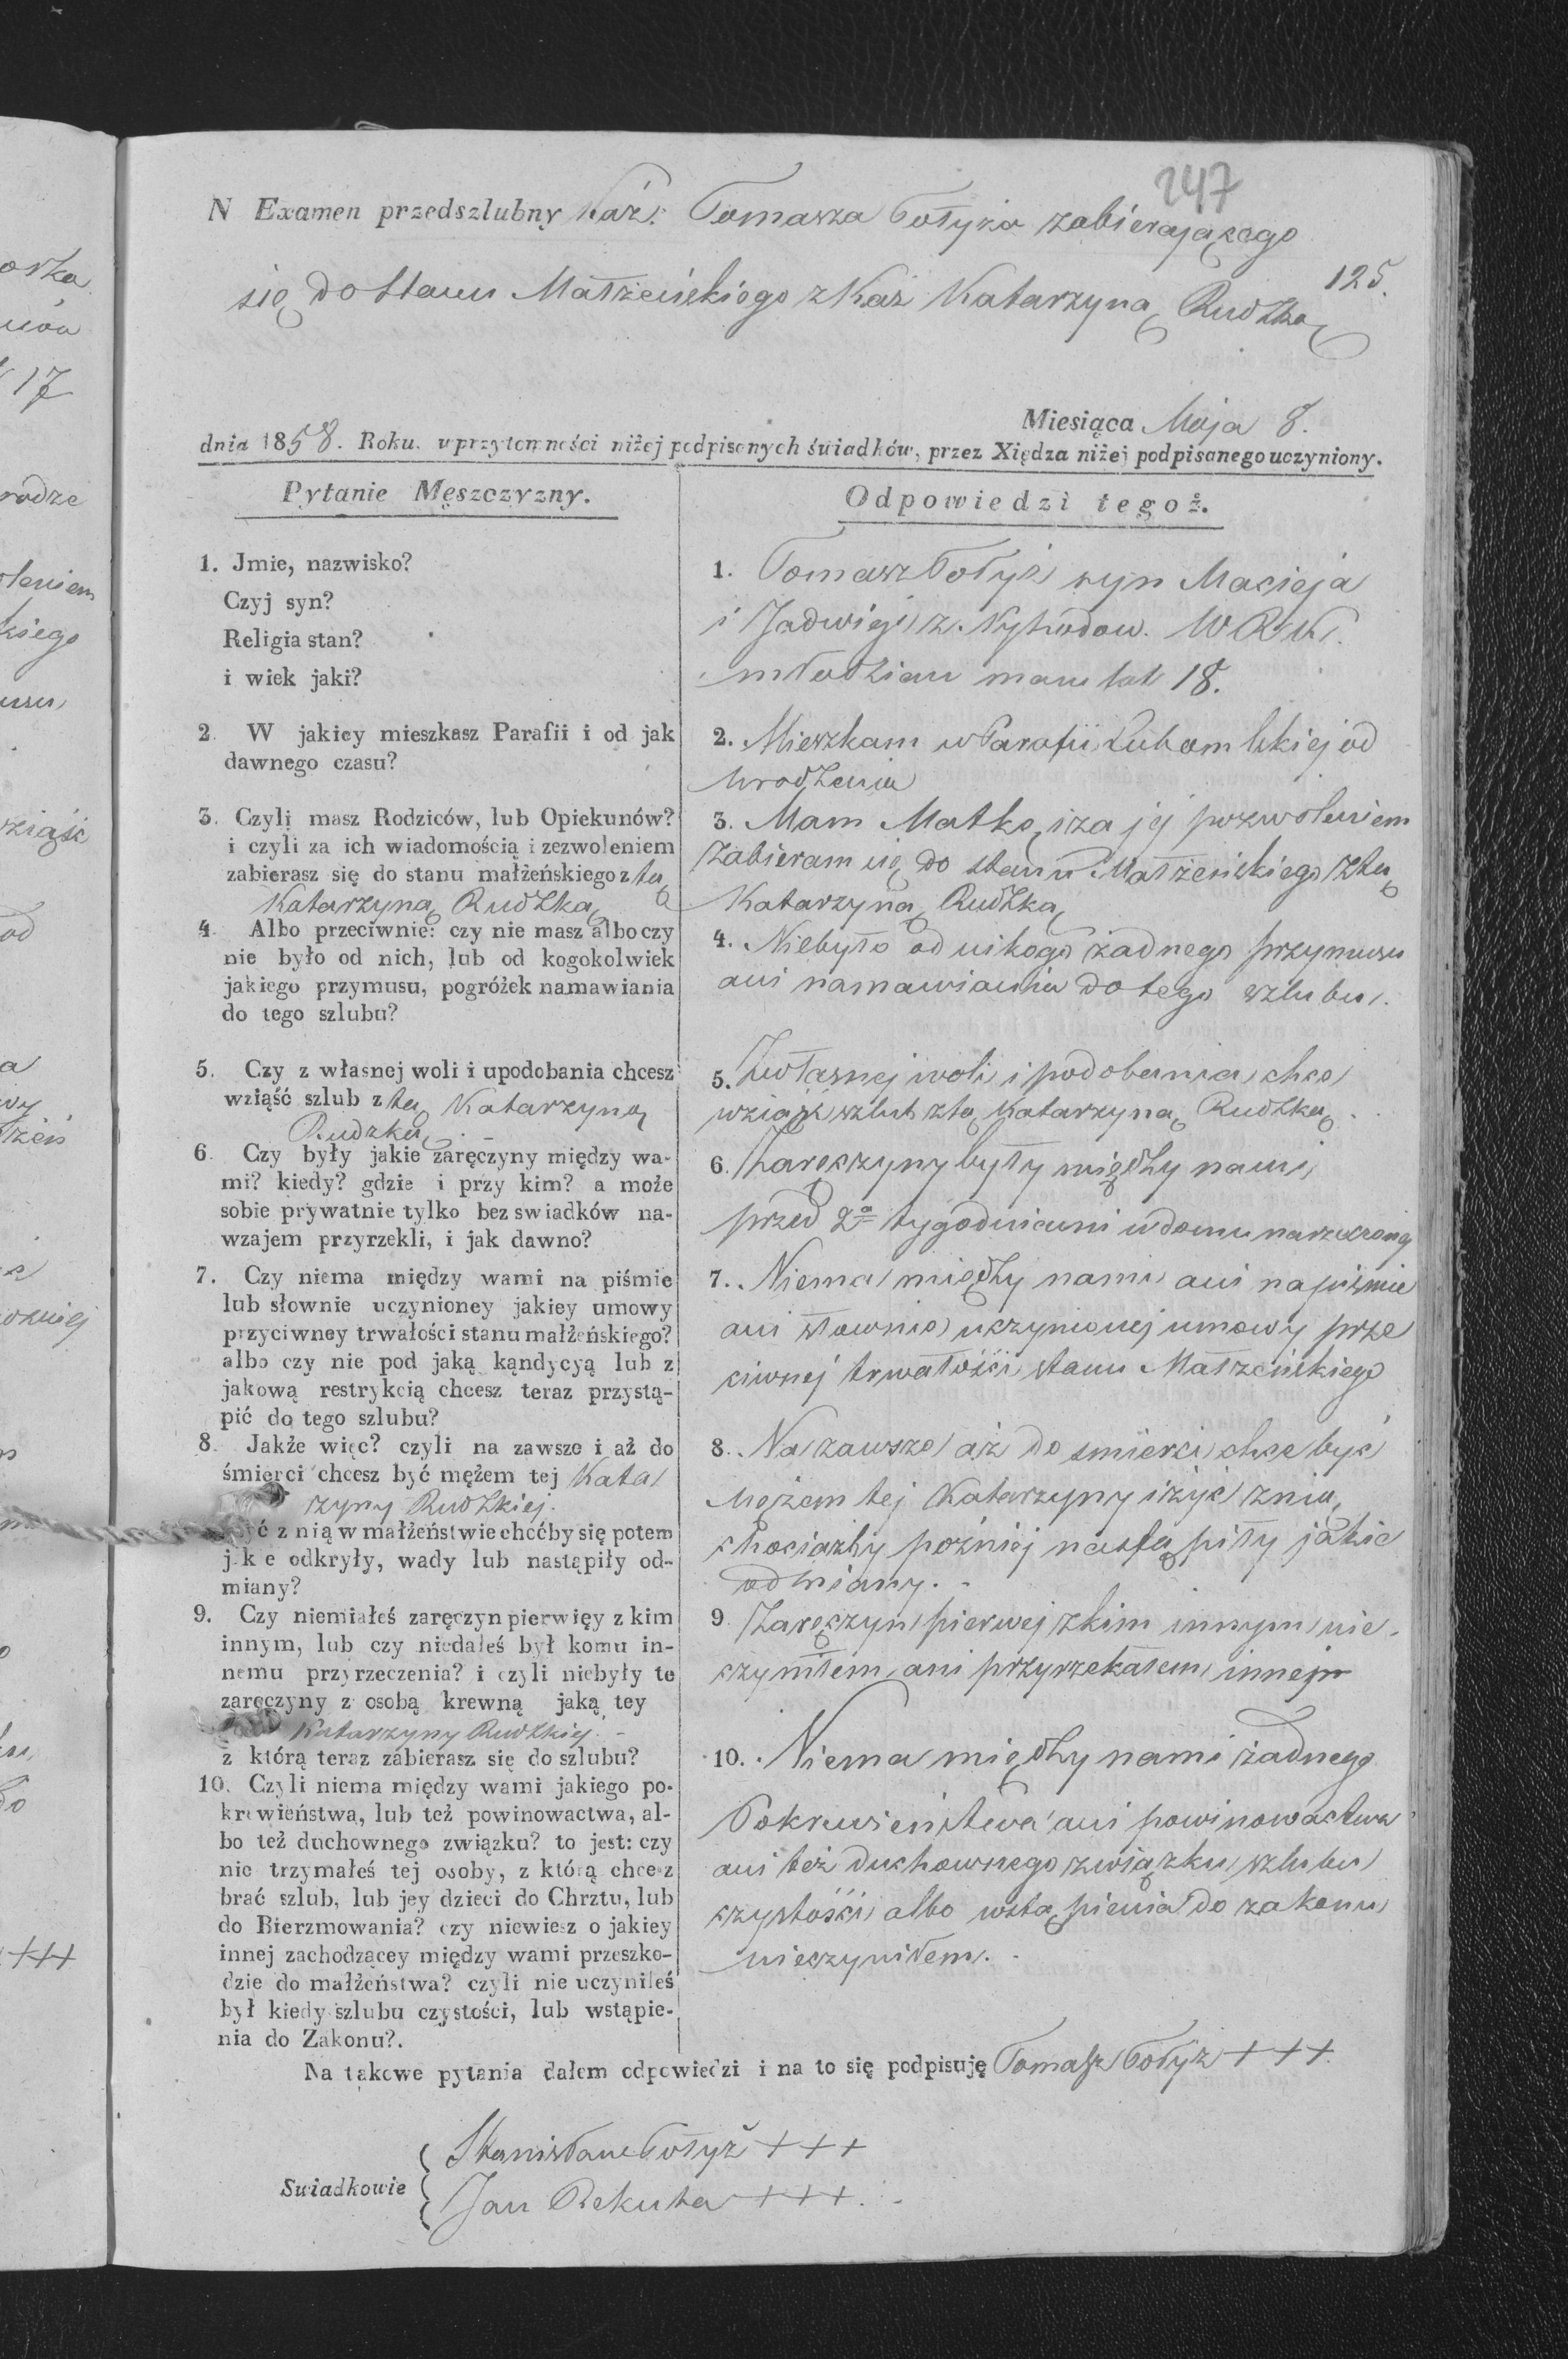 247
N Examen przedszlubny Kaź: Tomasza Tołyża zabierającego
125.
się do stanu Małżeńskiego z Kaź Katarzyną Rudzką
Miesiąca Maja 8.
dnia 1858. Roku. w przytomności niżej podpisanych świadków, przez Xiędza niżej podpisanego uczyniony.
Pytanie Męszczyzny.
1. Jmie, nazwisko?
Czyj syn?
Religia stan?
i wiek jaki?
2. W jakiey mieszkasz Parafii i od jak
dawnego czasu?
3. Czyli masz Rodziców, lub Opiekunów?
i czyli za ich wiadomością i zezwoleniem
zabierasz się do stanu małżeńskiego z tą
Katarzyną Rudzką
4. Albo przeciwnie: czy nie masz albo czy
nie było od nich, lub od kogokolwiek
jakiego przymusu, pogróżek namawiania
do tego szlubu?
5. Czy z własnej woli i upodobania chcesz
wziąść szlub z tą Katarzyną
Rudzką. -
6. Czy były jakie zaręczyny między wa-
mi? kiedy? gdzie i przy kim? a może
sobie prywatnie tylko bez swiadków na-
wzajem przyrzekli, i jak dawno?
7. Czy niema między wami na piśmie
lub słownie uczynioney jakiey umowy
przyciwney trwałości stanu małżeńskiego?
albo czy nie pod jaką kąndycyą lub z
jakową restrykcią chcesz teraz przystą-
pić do tego szlubu?
8. Jakże więc? czyli na zawsze i aż do
śmierci chcesz być mężem tej Kata
rzyny Rudzkiej.
z nią w małżeństwie choćby się potem
j k e odkryły, wady lub nastąpiły od-
miany?
9. Czy niemiałeś zaręczyn pierwięy z kim
innym, lub czy niedałeś był komu in-
nemu przyrzeczenia? i czyli niebyły te
zaręczyny z osobą krewną jaką tey
Katarzyny Rudzkiej. -
z którą teraz zabierasz się do szlubu?
10. Czyli niema między wami jakiego po-
krewieństwa, lub też powinowactwa, al-
bo też duchownego związku? to jest: czy
nie trzymałeś tej osoby, z którą chcesz
brać szlub, lub jey dzieci do Chrztu, lub
do Bierzmowania? czy niewiesz o jakiey
innej zachodzącey między wami przeszko-
dzie do małżeństwa? czyli nie uczyniłeś
był kiedy szlubu czystości, lub wstąpie-
nia do Zakonu?.
Odpowiedzi tegoż.
1. Tomasz Tołyż syn Macieja
i Jadwigi z. W R K.
młodzian mam lat 18.
2. Mieszkam w Parafii Lubomlskiej od
urodzenia
3. Mam Matkę, i za jej pozwoleniem
zabieram się do stanu Małżeńskiego z tą
Katarzyną Rudzką
4. Niebyło od nikogo żadnego przymusu
ani namawiania do tego szlubu.
5. Z własnej woli i podobania chcę
wziąść szlub z tą Katarzyną Rudzką.
6. Zaręczyny były między nami
przed 2a tygodniami w domu narzeczonej
7. Niema między nami ani na piśmie
ani słownie uczynionej umowy prze
ciwnej trwałości stanu Małżeńskiego
8. Na zawsze aż do smierci chcę być
Mężem tej Katarzyny i żyć z nią,
chociażby poźniej nastąpiły jakie
odmiany. -
9. Zaręczyn pierwej z kim innym nie-
czyniłem, ani przyrzekałem innej
10. Niema między nami żadnego
Pokrewieństwa ani powinowactwa
ani też duchownego związku, szlubu
czystości albo wstąpienia do zakonu
nieczyniłem. -
Na takowe pytania dałem odpowiedzi i na to się podpisuję Tomasz Tołyż +++
Swiadkowie
Stanisław Tołyż +++
Jan Rekuta +++. -